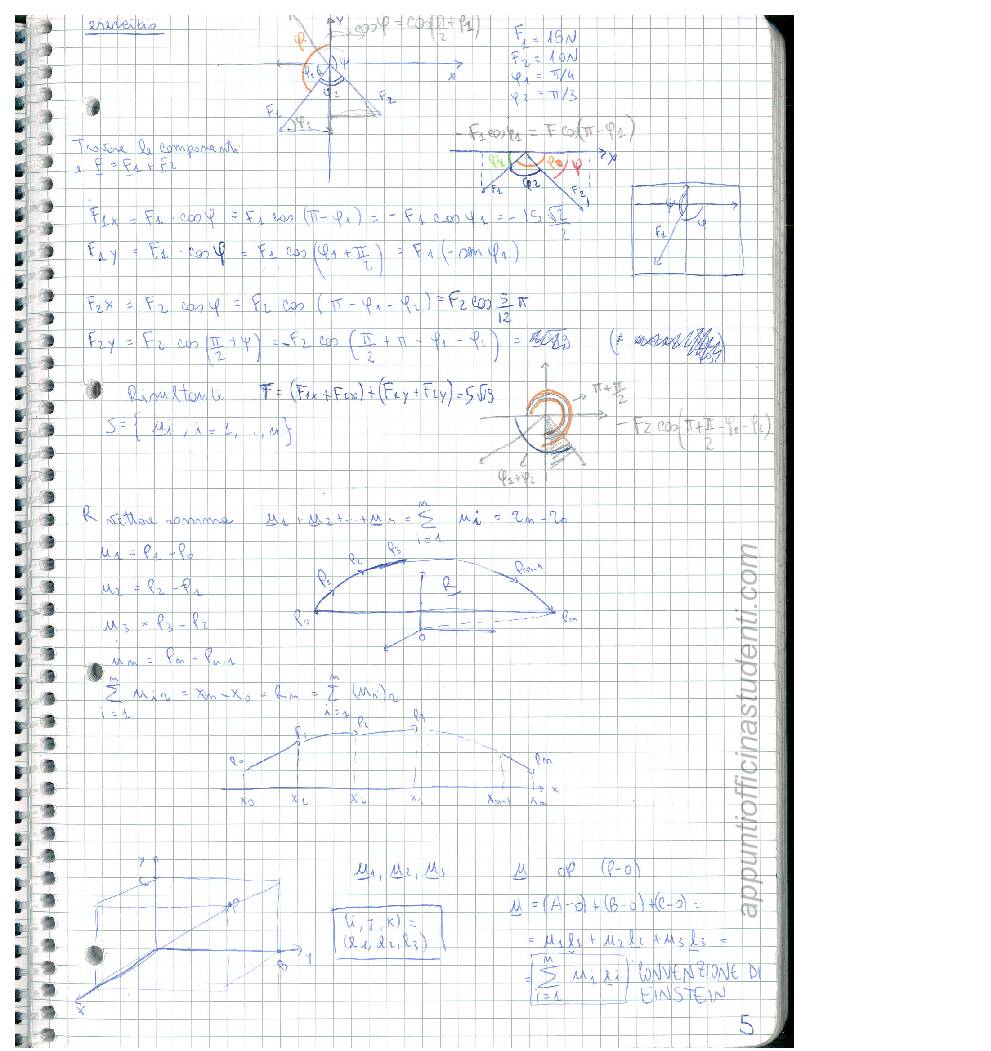 esercitas
cosφ = cos(π/2 + φ1)
F1 = 15N
F2 = 10N
φ1 = π/4
φ2 = π/3
y
x
φ
φ1
ψ
φ2
F1
F2
φ1
- F1 cosφ1 = F cos(π-φ1)
Trovare le componenti
F = F1 + F2
φ1 φ2 φ x
F1 F2
F1x = F1 · cosφ = F1 cos(π-φ1) = - F1 cosφ1 = -15 √2/2
F1y = F1 · cosψ = F1 cos(φ1 + π/2) = F1(-senφ1)
ψ
φ
F1
F2x = F2 cosφ = F2 cos(π - φ1 - φ2) = F2 cos 5/12 π
F2y = F2 cos(π/2 + φ) = -F2 cos(π/2 + π - φ1 - φ2) =
Risultante F = (F1x + F2x) + (F1y + F2y) = 5√19
π + π/2
- F2 cos(π + π/2 - φ1 - φ2)
φ1 + φ2
S = { u1, i = 1, ..., n}
R vettore somma u1 + u2 + ... + un = Σ ui = rn - r0
n
i=1
u1 = P1 - P0
u2 = P2 - P1
u3 = P3 - P2
un = Pn - Pn-1
P0 P1 P2 P3 Pn-1 Pn
R
O
n
i=1
Σ uix = xn - x0 = Rn = Σ (un)x
P0 P1 P2 P3 Pn
x0 x1 x2 x3 xn-1 xn x
u1, u2, u3
(i, j, k) =
(e1, e2, e3)
u OP (P-O)
u = (A-O) + (B-O) + (C-O) =
= u1e1 + u2e2 + u3e3 =
= Σ ui ei CONVENZIONE DI
EINSTEIN
i=1
C
P
B
y
x
5
appuntiofficinastudenti.com